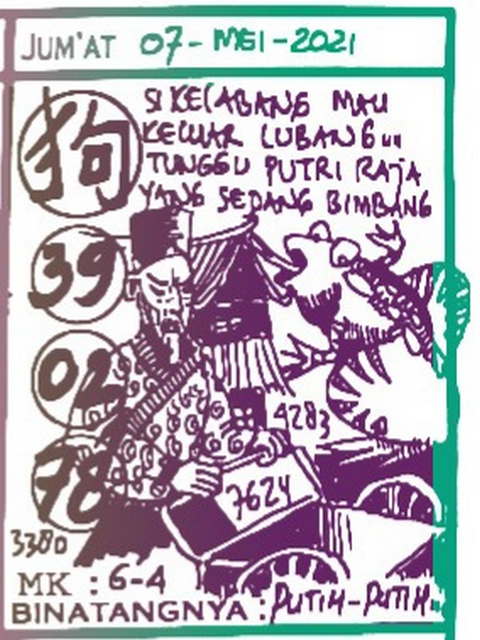 JUM'AT 07-MEI-2021
狗
SI KECABANG MAU
KELUAR LUBANG...
TUNGGU PUTRI RAJA
YANG SEDANG BIMBANG
39
02
78
4283
7624
3380
MK : 6-4
BINATANGNYA : PUTIH-PUTIH.